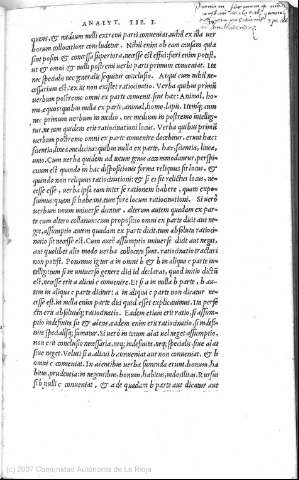 ANALYT. LIB. I.
quens, & medium nulli extremi parti conveniat nihil ex illa ver
borum collocatione concludetur. Nihil enim ob eam causam quia
sint posita & concessa superiora, necesse est effici: fieri enim potest,
ut & omni & nulli postremi verbi parti primum conveniat. Ita
nec specialis nec generalis sequitur conclusio. Atqui cum nihil ne
cessarium est: ex iis non existet ratiocinatio. Verba quibus primū
verbum postremo omni ex parte convenit sint hæc: Animal, ho-
mo, equus: quibus nulla ex parte, animal, homo, lapis. Itemq́; cum
nec primum verbum in medio, nec medium in postremo intellige-
tur ne cum quidem erit ratiocinationi locus. Verba quibus primū
verbum postremo omni ex parte convenire docebitur, erunt hæc:
scientia, linea, medicina: quibus nulla ex parte, hæc: scientia, linea,
unio. Cum verba quidem ad totum genus accommodantur, perspi-
cuum est quando in hac dispositionis forma reliquus sit locus, &
quando non reliquus ratiocinationi: & si ei sit relictus locus, ne-
cesse esse, verba ipsa eam inter se rationem habere, quam expo-
suimus: quam si habeant, tum fore locum ratiocinationi. Si verò
verbum unum universè dicatur, alterum autem quadam ex par-
te cum altero collatum: cum propositio omni ex parte dicit aut ne-
gat, assumptio autem quadam ex parte dicit, tum absoluta ratioci-
natio sit necesse est. Cum autē assumptio universè dicit aut negat,
aut quolibet alio modo verba collocata sunt, ratiocinatio tractari
non potest. Ponamus igitur a in omni b & b in aliquo c parte in-
telligi: tum si in universo genere dici id declarat, quod initio dictū
est, necesse erit a alicui c convenire. Et si a in nulla b parte, b au-
tem in aliquo c parte dicitur: a in aliqua c parte non dicatur ne-
cesse est. in nulla enim parte dici quid esset explicavimus. Ita perfe
ctū erit absolutāq́; ratiocinatio. Eadem etiam erit ratio, si assum-
ptio indefinite sit & aiens. eadem enim erit ratiocinatio, si indefi-
nite specialisq́; sumatur. Si verò minori aiat vel neget assumptio,
non erit conclusio necessaria, neq́; indefinite, neq́; specialis sive aiat
sive neget. Veluti si a alicui b conveniat aut non conveniat, & b
omni c conveniat. In aientibus verba sumenda erunt, bonum, ha-
bitus, prudentia: in negantibus, bonum, habitus, indocilitas. Rursus
si b nulli c conveniat, & a de quadam b parte aut dicatur aut
(c) 2007 Comunidad Autónoma de La Rioja